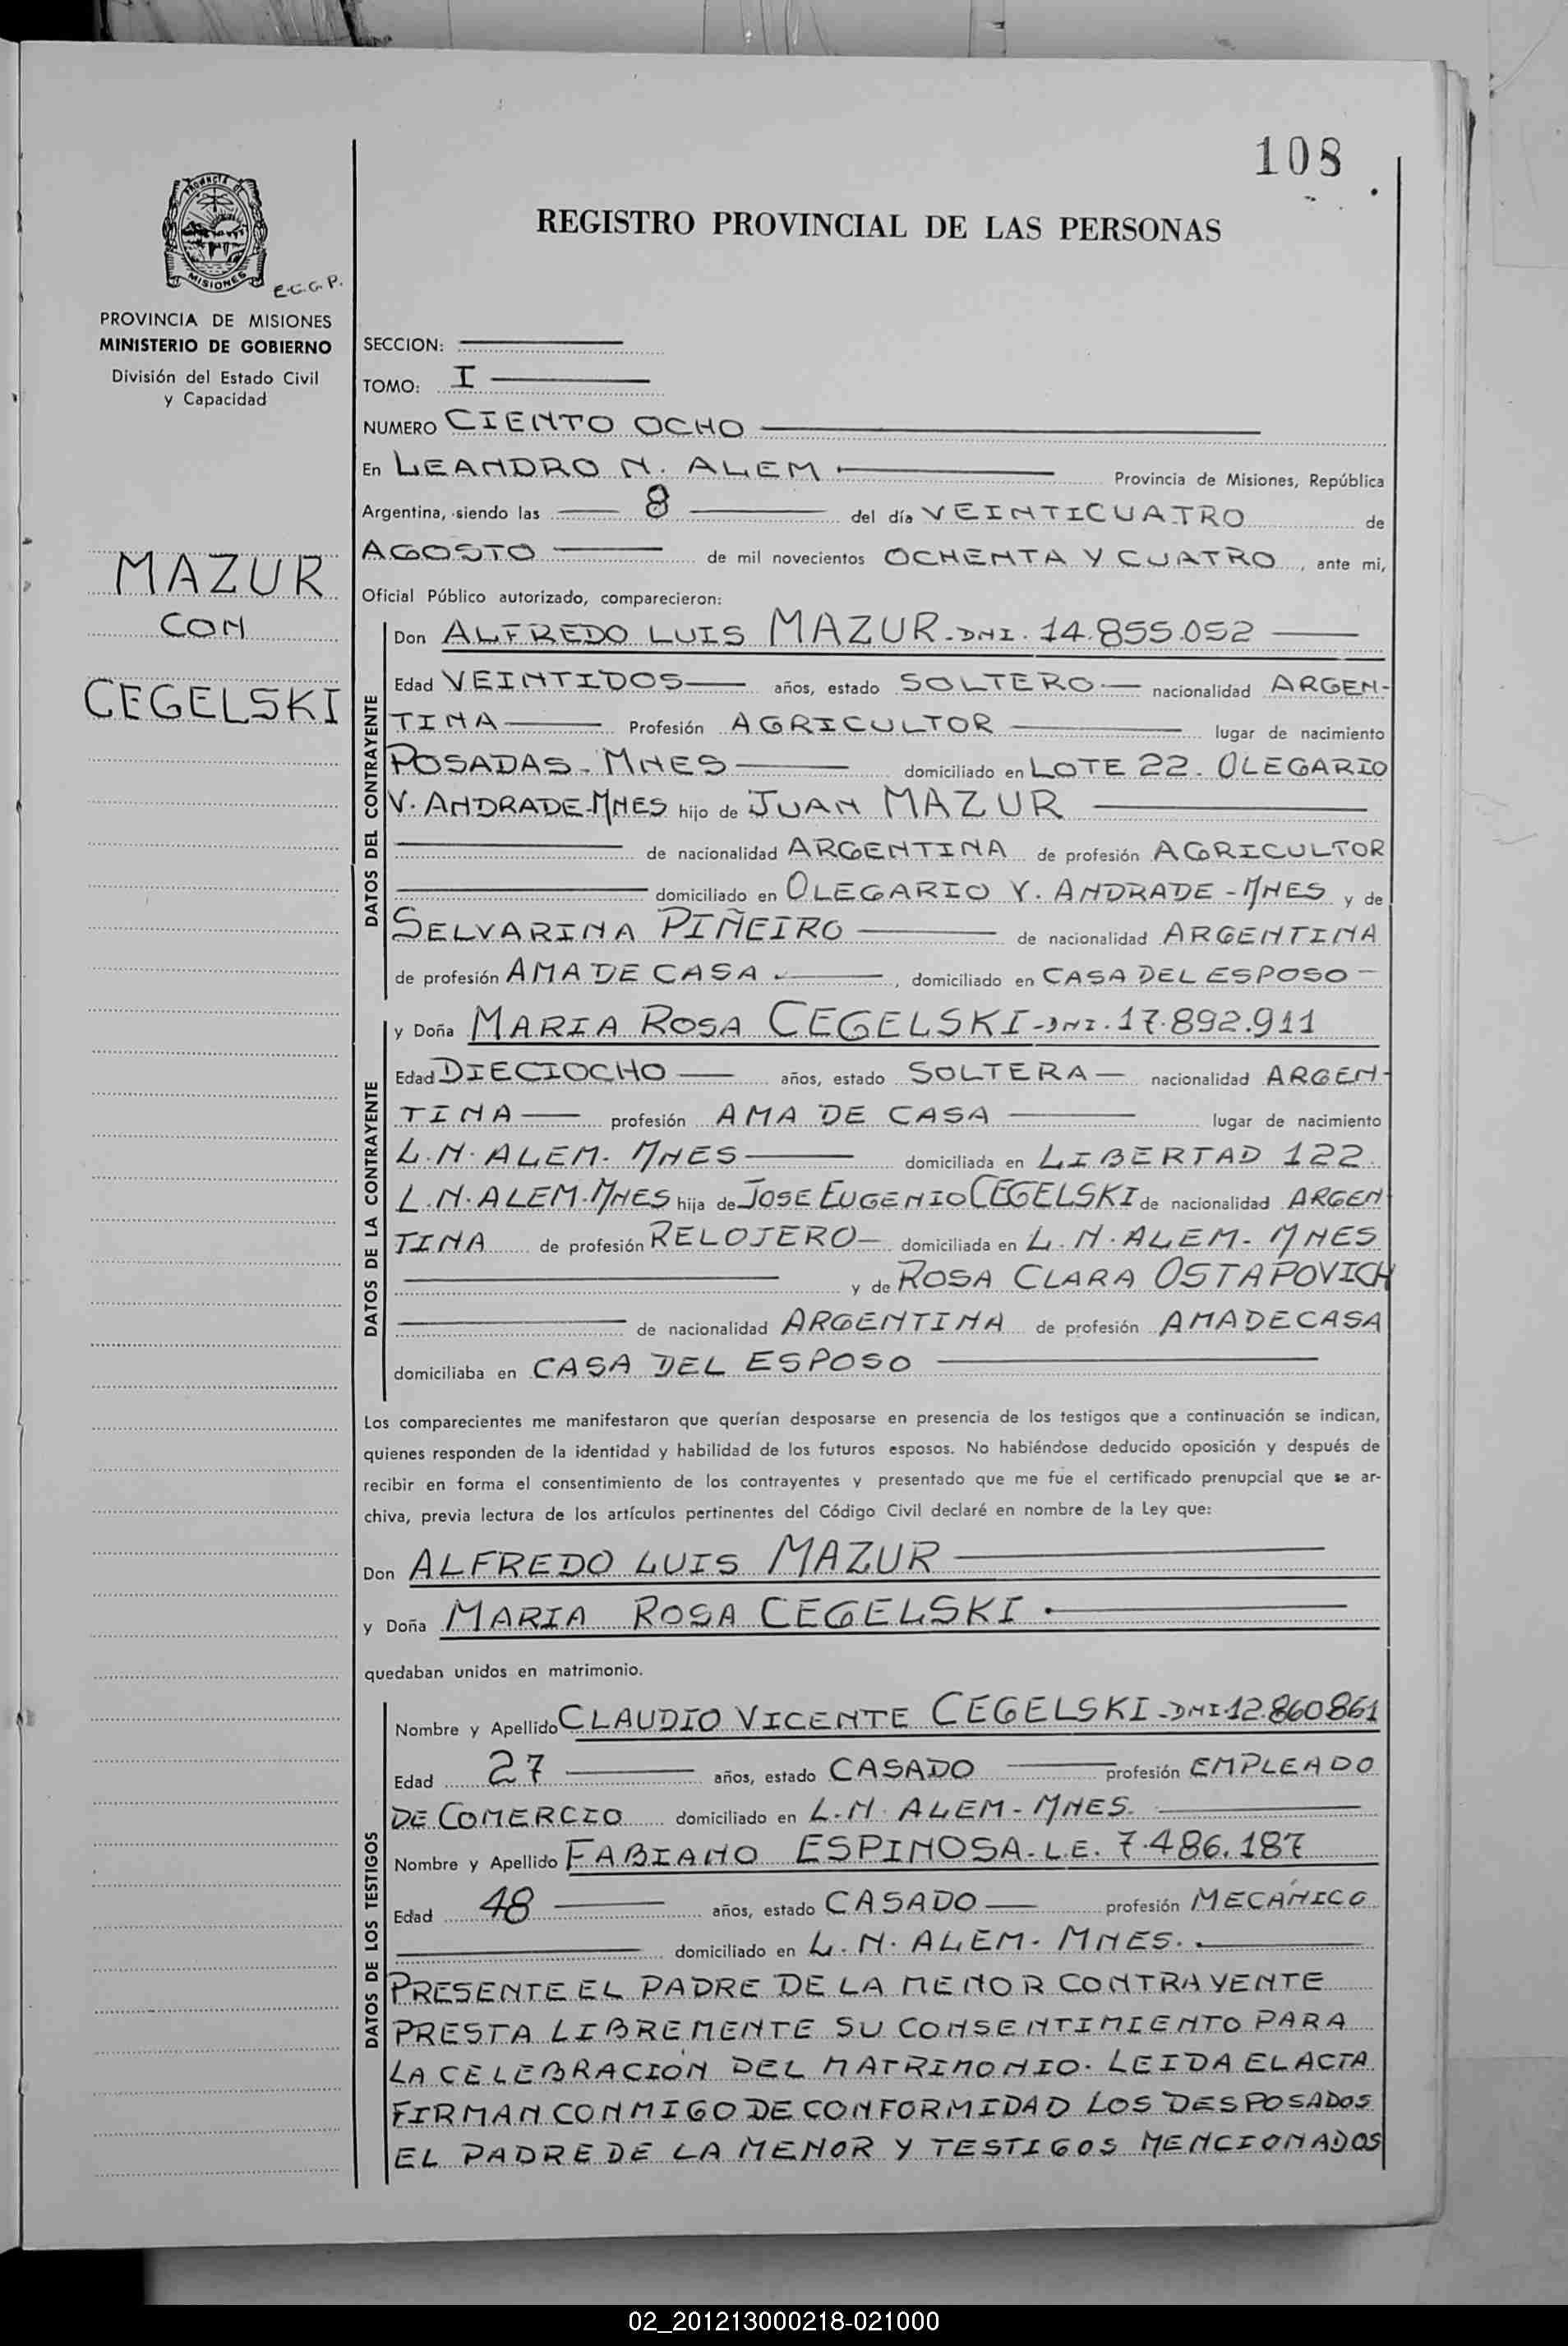 108
REGISTRO PROVINCIAL DE LAS PERSONAS
PROVINCIA DE
MISIONES
E.C.G.P.
PROVINCIA DE MISIONES
MINISTERIO DE GOBIERNO
División del Estado Civil
y Capacidad
MAZUR
CON
CEGELSKI
SECCION:
TOMO: I
NUMERO CIENTO OCHO
En LEANDRO N. ALEM Provincia de Misiones, República
Argentina, siendo las 8 del día VEINTICUATRO de
AGOSTO de mil novecientos OCHENTA Y CUATRO, ante mi,
Oficial Público autorizado, comparecieron:
DATOS DEL CONTRAYENTE
Don ALFREDO LUIS MAZUR-DNI. 14.855.052
Edad VEINTIDOS años, estado SOLTERO nacionalidad ARGEN-
TINA Profesión AGRICULTOR lugar de nacimiento
POSADAS-MNES domiciliado en LOTE 22. OLEGARIO
V. ANDRADE-MNES hijo de JUAN MAZUR
de nacionalidad ARGENTINA de profesión AGRICULTOR
domiciliado en OLEGARIO V. ANDRADE-MNES y de
SELVARINA PIÑEIRO de nacionalidad ARGENTINA
de profesión AMA DE CASA, domiciliado en CASA DEL ESPOSO
DATOS DE LA CONTRAYENTE
y Doña MARIA ROSA CEGELSKI-DNI.17.892.911
Edad DIECIOCHO años, estado SOLTERA nacionalidad ARGEN-
TINA profesión AMA DE CASA lugar de nacimiento
L.N. ALEM-MNES domiciliada en LIBERTAD 122.
L.N. ALEM-MNES hija de JOSE EUGENIO CEGELSKI de nacionalidad ARGEN
TINA de profesión RELOJERO domiciliada en L.N. ALEM-MNES
y de ROSA CLARA OSTAPOVICH
de nacionalidad ARGENTINA de profesión AMA DE CASA
domiciliaba en CASA DEL ESPOSO
Los comparecientes me manifestaron que querían desposarse en presencia de los testigos que a continuación se indican,
quienes responden de la identidad y habilidad de los futuros esposos. No habiéndose deducido oposición y después de
recibir en forma el consentimiento de los contrayentes y presentado que me fue el certificado prenupcial que se ar-
chiva, previa lectura de los artículos pertinentes del Código Civil declaré en nombre de la Ley que:
Don ALFREDO LUIS MAZUR
y Doña MARIA ROSA CEGELSKI
quedaban unidos en matrimonio.
DATOS DE LOS TESTIGOS
Nombre y Apellido CLAUDIO VICENTE CEGELSKI-DNI.12.860861
Edad 27 años, estado CASADO profesión EMPLEADO
DE COMERCIO domiciliado en L.N. ALEM-MNES.
Nombre y Apellido FABIANO ESPINOSA-L.E. 7.486.187
Edad 48 años, estado CASADO profesión MECÁNICO
domiciliado en L.N. ALEM-MNES.
PRESENTE EL PADRE DE LA MENOR CONTRAYENTE
PRESTA LIBREMENTE SU CONSENTIMIENTO PARA
LA CELEBRACIÓN DEL MATRIMONIO. LEIDA EL ACTA
FIRMAN CONMIGO DE CONFORMIDAD LOS DESPOSADOS
EL PADRE DE LA MENOR Y TESTIGOS MENCIONADOS
02_201213000218-021000